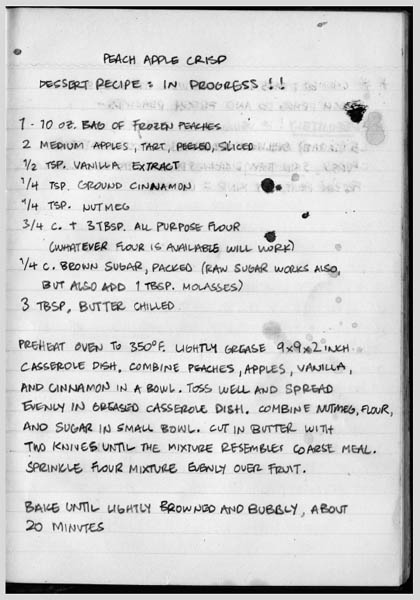 PEACH APPLE CRISP
DESSERT RECIPE: IN PROGRESS!!
1 - 10 OZ. BAG OF FROZEN PEACHES
2 MEDIUM APPLES, TART, PEELED, SLICED
1/2 TSP. VANILLA EXTRACT
1/4 TSP. GROUND CINNAMON
1/4 TSP. NUTMEG
3/4 C. + 3 TBSP. ALL PURPOSE FLOUR
(WHATEVER FLOUR IS AVAILABLE WILL WORK)
1/4 C. BROWN SUGAR, PACKED (RAW SUGAR WORKS ALSO,
BUT ALSO ADD 1 TBSP. MOLASSES)
3 TBSP, BUTTER CHILLED
PREHEAT OVEN TO 350°F. LIGHTLY GREASE 9x9x2 INCH
CASSEROLE DISH. COMBINE PEACHES, APPLES, VANILLA,
AND CINNAMON IN A BOWL. TOSS WELL AND SPREAD
EVENLY IN GREASED CASSEROLE DISH. COMBINE NUTMEG, FLOUR,
AND SUGAR IN SMALL BOWL. CUT IN BUTTER WITH
TWO KNIVES UNTIL THE MIXTURE RESEMBLES COARSE MEAL.
SPRINKLE FLOUR MIXTURE EVENLY OVER FRUIT.
BAKE UNTIL LIGHTLY BROWNED AND BUBBLY, ABOUT
20 MINUTES